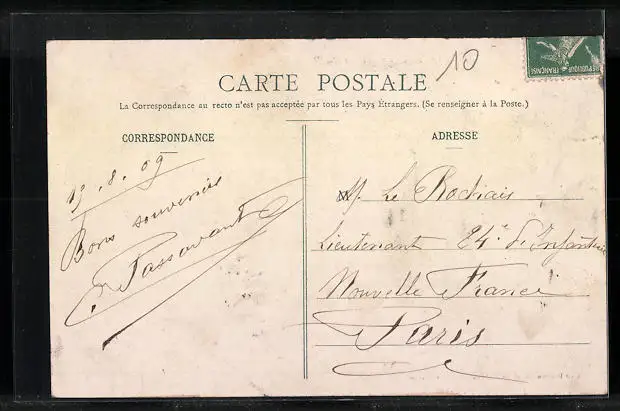 10
RÉPUBLIQUE FRANÇAISE
CARTE POSTALE
La Correspondance au recto n'est pas acceptée par tous les Pays Étrangers. (Se renseigner à la Poste.)
CORRESPONDANCE
.8.09
Bons souvenirs
Passavant
ADRESSE
M. Le Rochais
Lieutenant 24e d'Infanterie
Nouvelle France
Paris